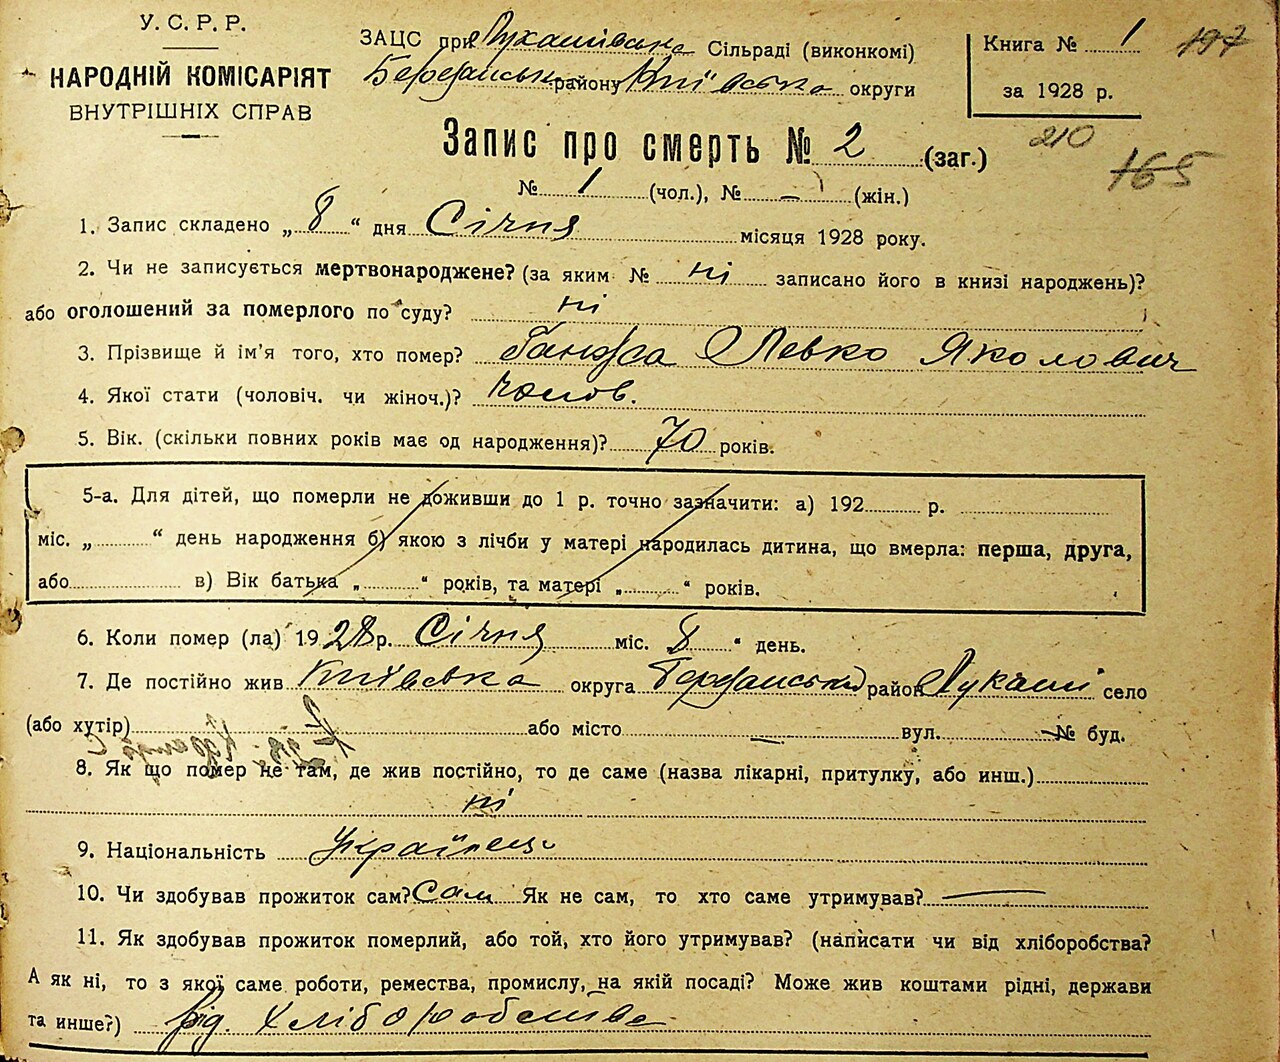 У. С. Р. Р.
НАРОДНІЙ КОМІСАРІЯТ
ВНУТРІШНІХ СПРАВ
ЗАЦС при Лукашівська Сільраді (виконкомі)
Березанськ району Київська округи
Книга № 1
197
за 1928 р.
210
165
Запис про смерть № 2 (заг.)
№ 1 (чол.), № – (жін.)
1. Запис складено „ 8 “ дня Січня місяця 1928 року.
2. Чи не записується мертвонароджене? (за яким № ні записано його в книзі народжень)?
або оголошений за померлого по суду? ні
3. Прізвище й ім'я того, хто помер? Ганжа Левко Яколович
4. Якої статі (чоловіч. чи жіноч.)? Чолов.
5. Вік. (скільки повних років має од народження)? 70 років.
5-а. Для дітей, що померли не доживши до 1 р. точно зазначити: а) 192 р.
міс. „ “ день народження б) якою з лічби у матері народилась дитина, що вмерла: перша, друга,
або в) Вік батька „ “ років, та матері „ “ років.
6. Коли помер (ла) 1928 р. Січня міс. 8 “ день.
7. Де постійно жив Київська округа Березанський район Лукаші село
(або хутір) або місто — вул. — № буд.
8. Як що помер не там, де жив постійно, то де саме (назва лікарні, притулку, або инш.)
ні
9. Національність Українець
10. Чи здобував прожиток сам? Сам Як не сам, то хто саме утримував? —
11. Як здобував прожиток померлий, або той, хто його утримував? (написати чи від хліборобства?
А як ні, то з якої саме роботи, ремества, промислу, на якій посаді? Може жив коштами рідні, держави
та инше?) Від. Хліборобства